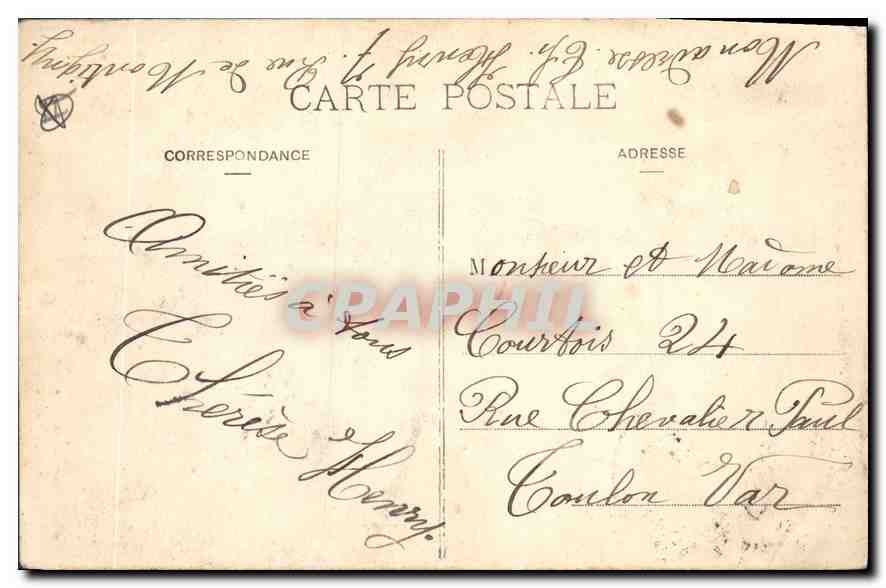 Mon adresse. Th. Henry 7. Rue de Montigny.
CARTE POSTALE
CORRESPONDANCE
ADRESSE
Amitiés à tous
Thérèse Henry.
Monsieur et Madame
Courtois 24
Rue Chevalier Paul
Toulon Var
CPAPHIL